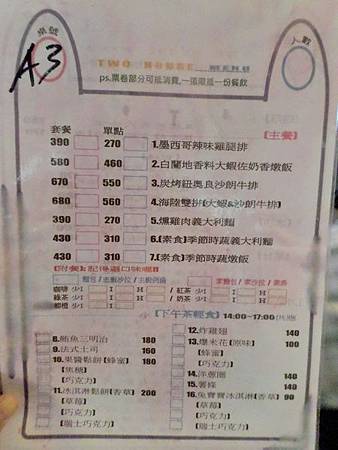 桌號
人數
A3
TWO HOUSE
ps.票卷部分可抵消費,一張限抵一份餐飲
套餐 單點 [主餐]
390 270 1.墨西哥辣味雞腿排
580 460 2.白蘭地香料大蝦佐奶香燉飯
670 550 3.炭烤紐奧良沙朗牛排
680 560 4.海陸雙拼(大蝦&沙朗牛排)
390 270 5.燻雞肉義大利麵
430 310 6.(素食)季節時蔬義大利麵
430 310 7.(素食)季節時蔬燉飯
[附餐]:記得選口味喔!!
咖啡 少I 紅茶 少I
綠茶 少I 奶茶 少I
[下午茶輕食] 14:00~17:00
8.鮪魚三明治 180
9.法式土司 160
10.果醬鬆餅(蜂蜜) 180
(焦糖)
(巧克力)
11.冰淇淋鬆餅(香草) 200
(草莓)
(巧克力)
(瑞士巧克力)
12.炸雞翅 140
13.爆米花(原味) 100
(蜂蜜)
(巧克力)
14.洋蔥圈 140
15.薯條 140
16.兔寶寶冰淇淋(香草) 90
(草莓)
(巧克力)
(瑞士巧克力)